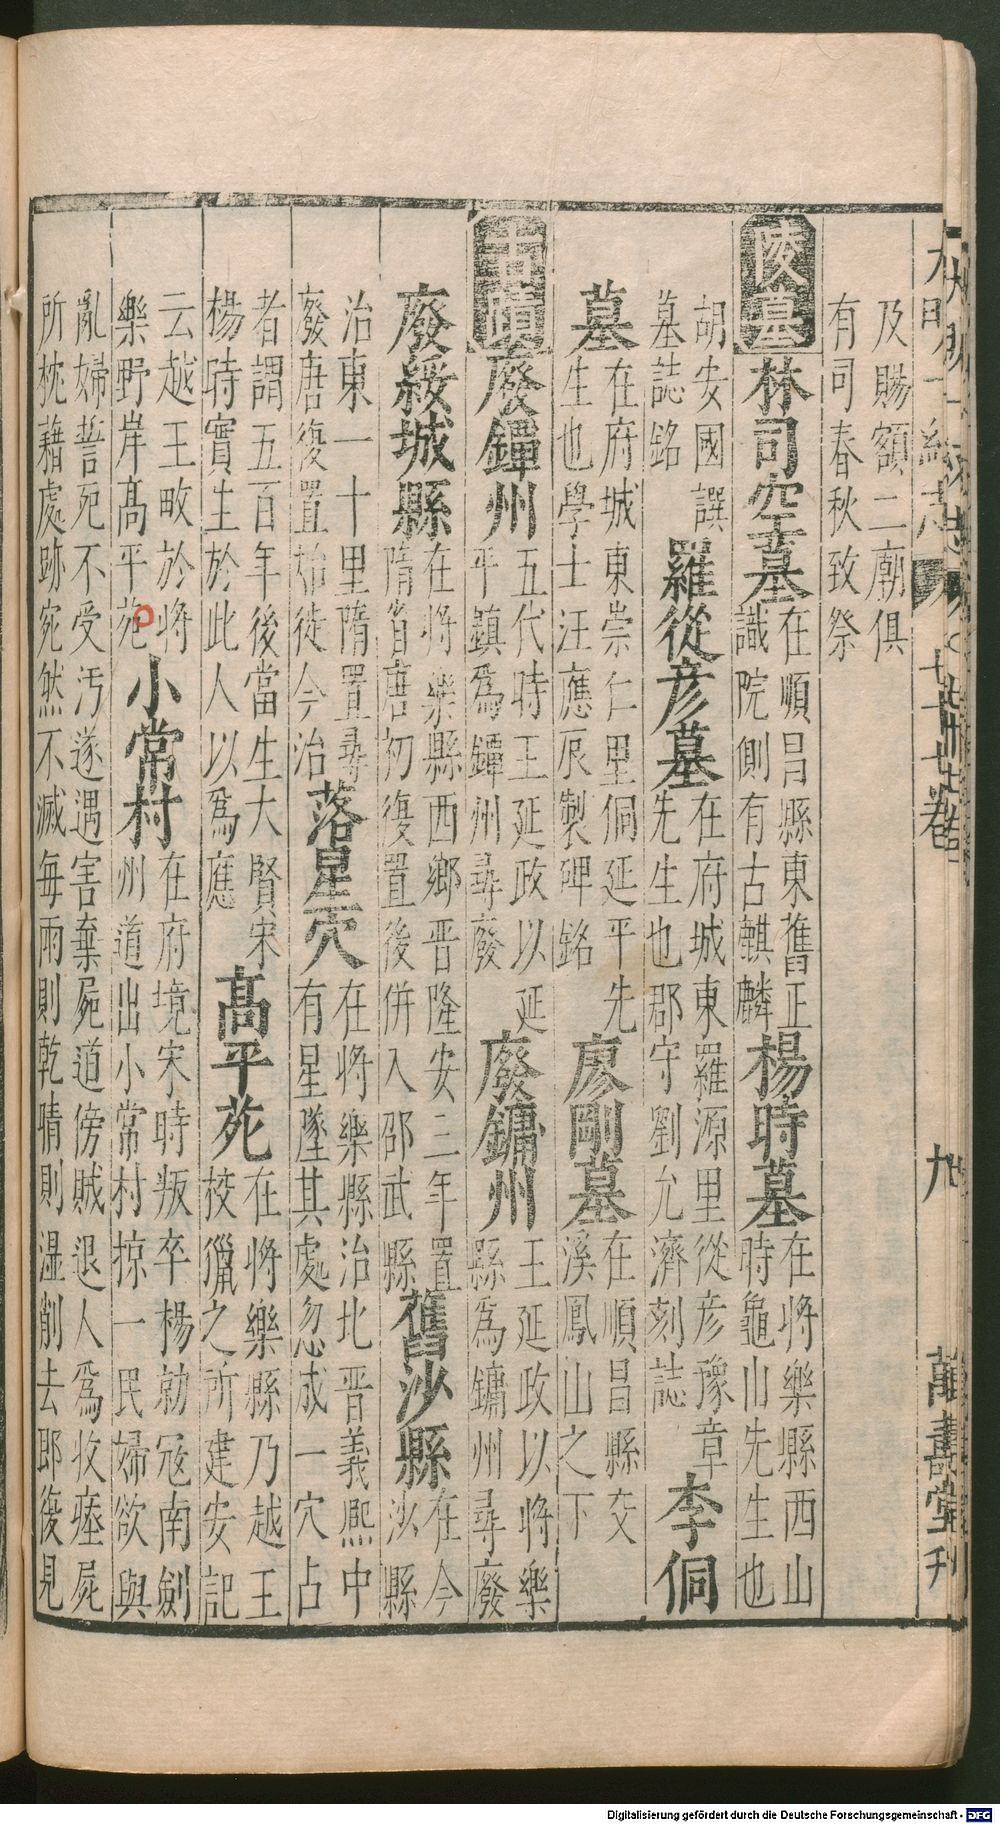 及賜額二廟俱
有司春秋致祭
陵墓 林司空墓 在順昌縣東舊正
識院側有古麒麟 楊時墓 在將樂縣西山
時龜山先生也
胡安國譔
墓誌銘 羅從彥墓 在府城東羅源里從彥豫章
先生也郡守劉允濟刻誌 李侗
墓 在府城東崇仁里侗延平先
生也學士汪應辰製碑銘 廖剛墓 在順昌縣交
溪鳳山之下
古蹟 廢鐔州 五代時王延政以延
平鎮為鐔州尋廢 廢鏞州 王延政以將樂
縣為鏞州尋廢
廢綏城縣 在將樂縣西鄉晋隆安三年置
隋省唐初復置後併入邵武縣 舊沙縣 在今
沙縣
治東一十里隋置尋
廢唐復置始徙今治 落星穴 在將樂縣治北晋義熈中
有星墜其處忽成一穴占
者謂五百年後當生大賢宋
楊時實生於此人以為應 高平苑 在將樂縣乃越王
校獵之所建安記
云越王畋於將
樂野岸高平苑 小常村 在府境宋時叛卒楊勍冦南劍
州道出小常村掠一民婦欲與
亂婦誓死不受汚遂遇害棄屍道傍賊退人為收瘞屍
所枕藉處跡宛然不滅每雨則乾晴則濕削去即後見
七十七卷
九
萬壽堂刊
Digitalisierung gefördert durch die Deutsche Forschungsgemeinschaft - DFG